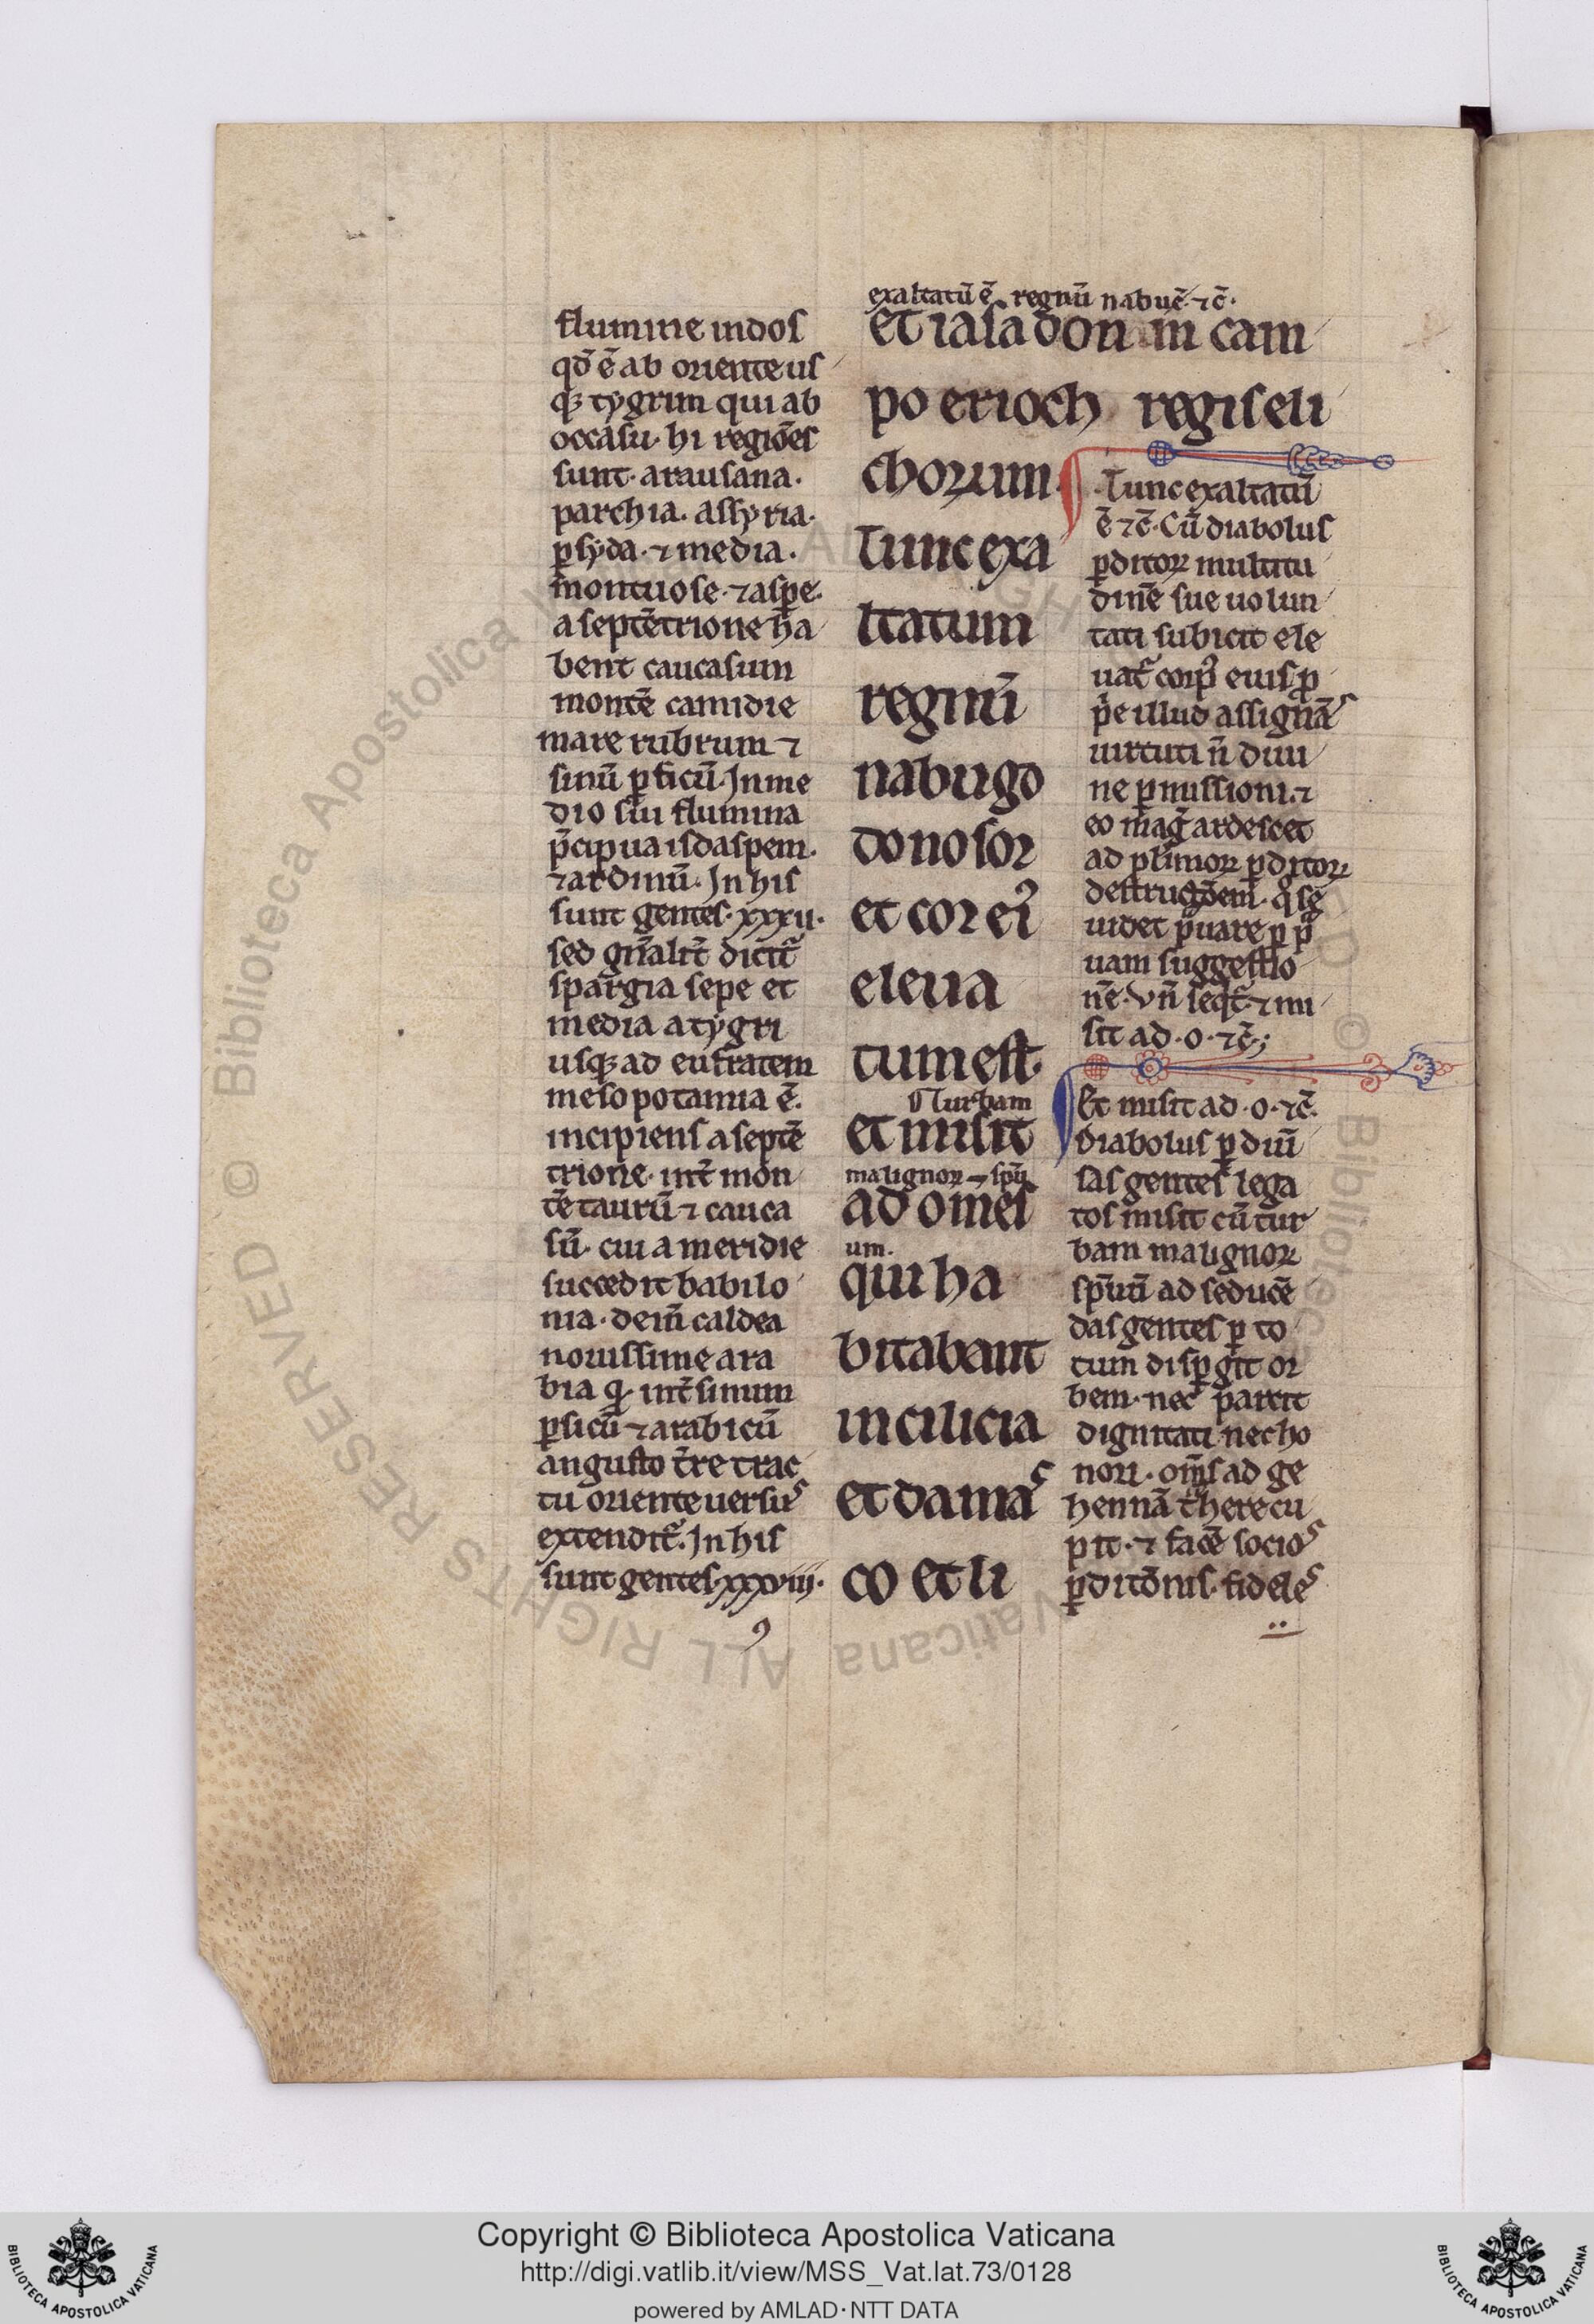 flumine indos
qd̄ ē ab oriente us
qꝫ tygrim qui ab
occasu· hi regiōes
sunt· arausana·
parthia· assyria·
ꝑsyda· ⁊ media·
montuose· ⁊ aspe·
a septētrione hā
bent caucasum
montē camidie
mare rubrum ⁊
sinū ꝑsicū· In me
dio sui flumina
p̄cipua isdaspem·
⁊ ardinū· In his
sunt gentes· xxxii·
sed gn̄alit̄ dicit̄
spargia sepe et
media a tygri
usqꝫ ad eufratem
mesopotamia ē·
incipiens a septē
trione· int̄ mon
tē taurū ⁊ cauca
sū· cui a meridie
succedit babilo
nia· dein̄ caldea
nouissime ara
bia q̨ int̄ sinum
ꝑsicū ⁊ arabicū
angusto t̄re trac
tu oriente uersus
extendit̄· In his
sunt gentes· xxxviii·
exaltatū ē regnū nabuc̄· ⁊c̄·
et iasadon in cam
po erioch regis eli
chorum·
Tunc exa
ltatum
regnū
nabugo
donosor
et cor ei᾽
eleua
tum est·
turbam
et misit
malignoꝝ spū
ad om̄es
um·
qui ha
bitabant
in cilicia
et damas
co et li
Tunc exaltatū
ē ⁊c̄· Cū diabolus
ꝑditoꝝ multitu
dinē sue uolun
tati subicit ele
uat̄ cor ip̄i᾽ eius ꝓ
p̄e illud assignās
uirtuti n̄ diui
ne ꝑmissioni· ⁊
eo mag̃ ardescet
ad pl̄imoꝝ ꝑditoꝝ
destrugōem· q̨ se
uidet p̄uare ꝑ p̄
uam suggestio
nē· Vn̄ seqt̄· ⁊ mi
sit ad ·o· ⁊c̄;
Et misit ad ·o· ⁊c̄·
Diabolus ꝑ diū
sas gentes lega
tos misit cū tur
bam malignoꝝ
sp̄uū ad seducē
das gentes ꝑ to
tum disꝑgit or
bem· nec parcit
dignitati nec ho
nori· om̄s ad ge
hennā t̄here cu
pit· ⁊ facē socios
ꝑditōnis· fideles
Copyright © Biblioteca Apostolica Vaticana
http://digi.vatlib.it/view/MSS_Vat.lat.73/0128
powered by AMLAD·NTT DATA